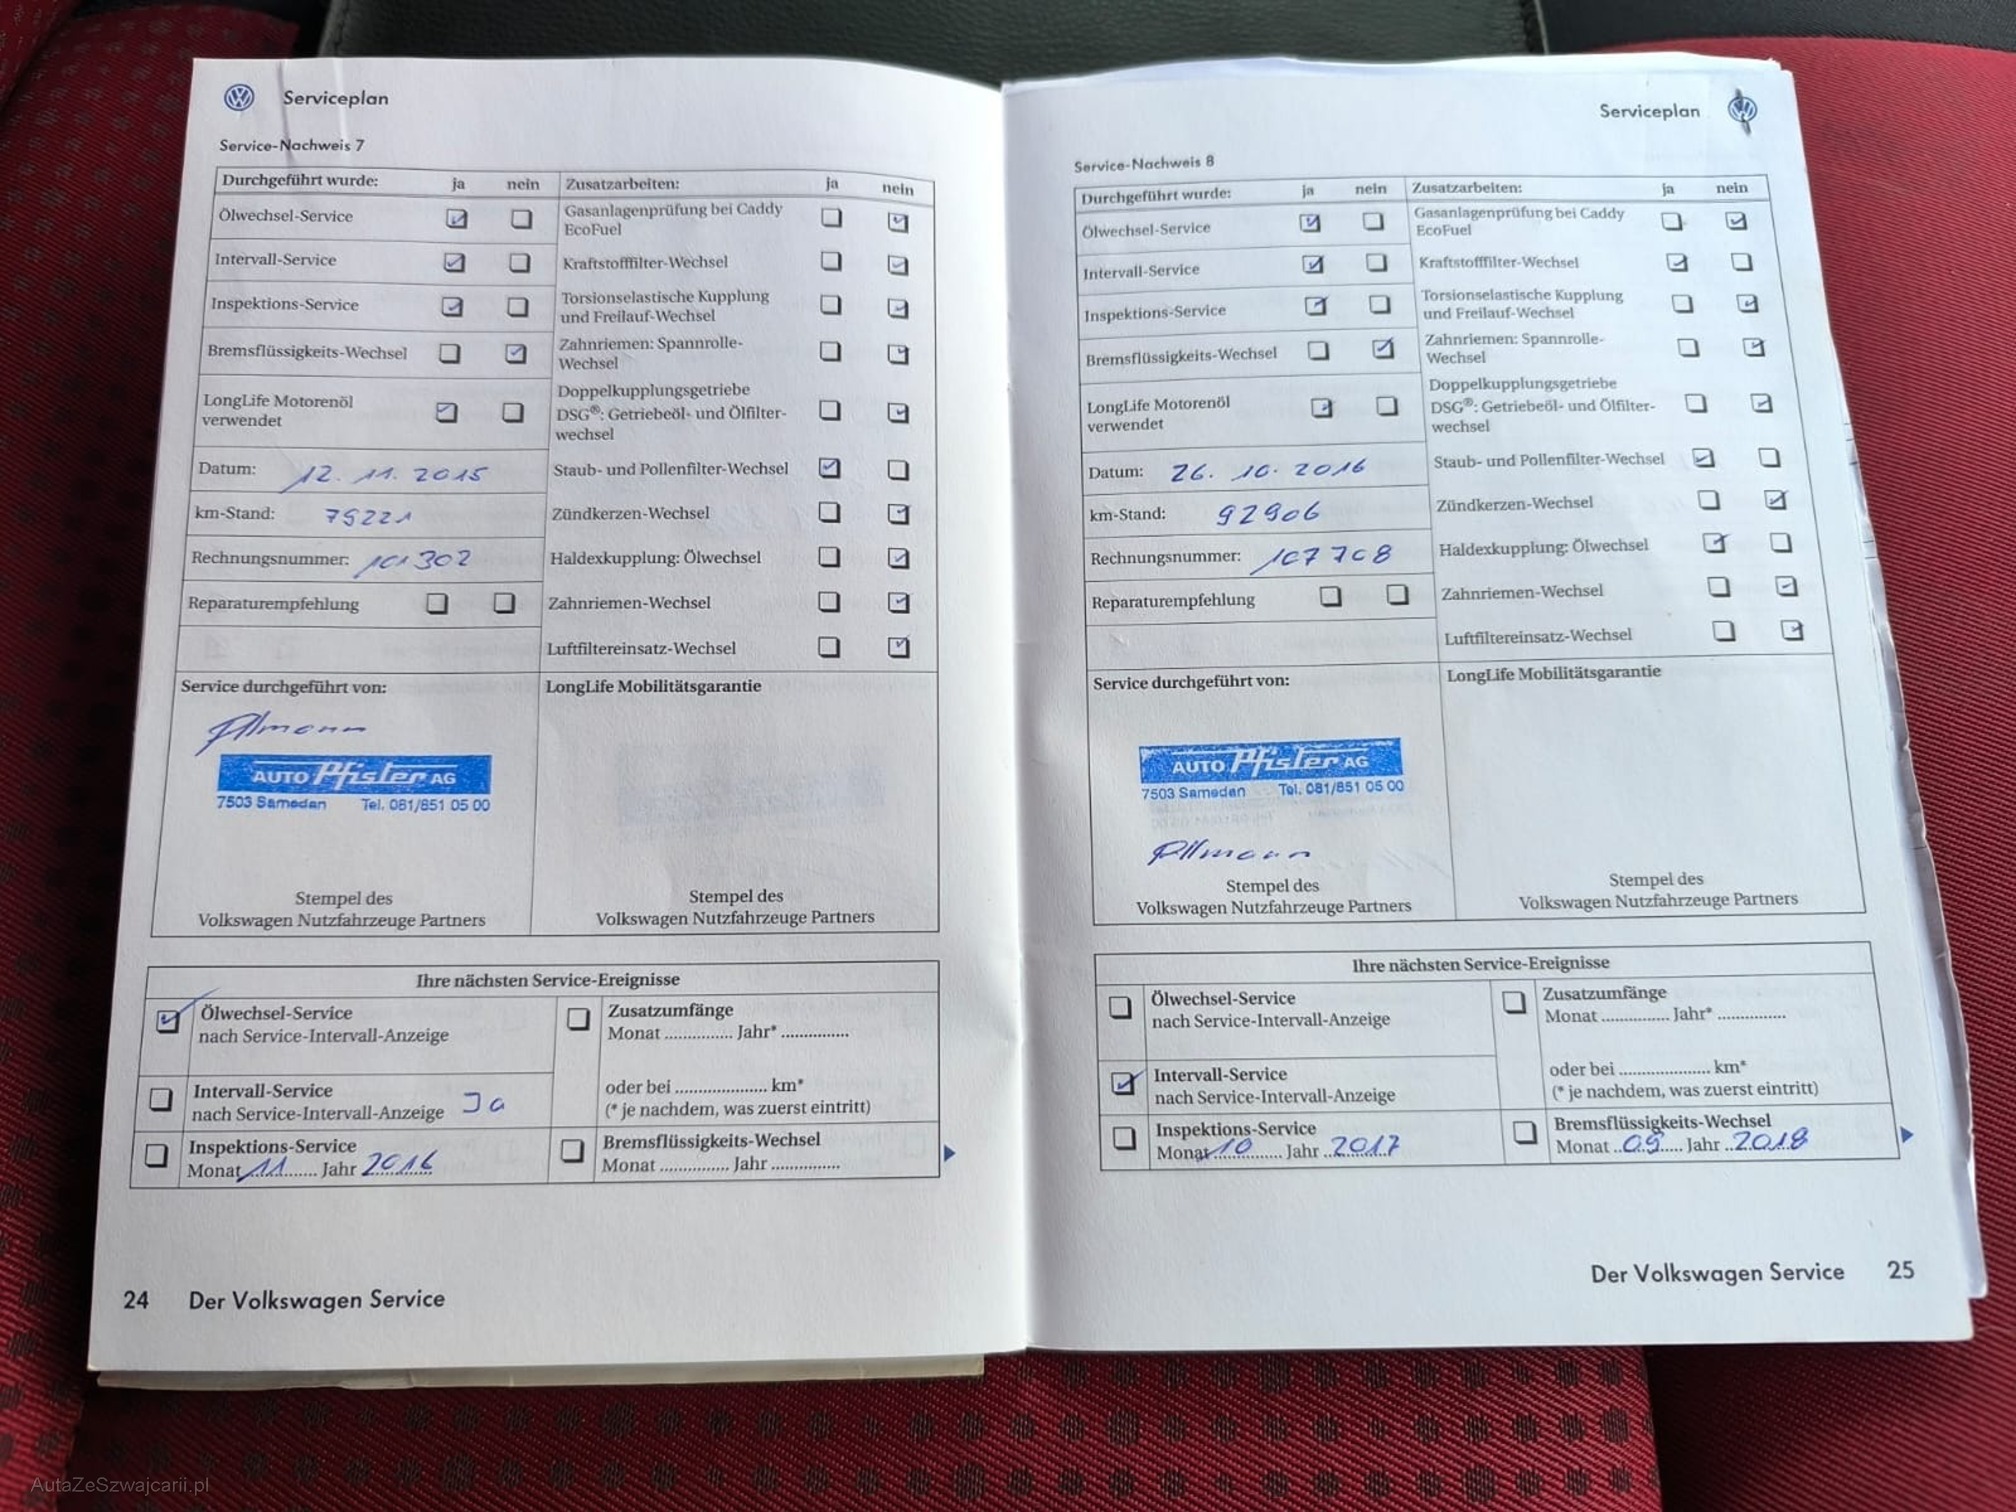 Serviceplan
Service-Nachweis 7
Durchgeführt wurde: ja nein
Ölwechsel-Service
Intervall-Service
Inspektions-Service
Bremsflüssigkeits-Wechsel
LongLife Motorenöl
verwendet
Datum: 12. 11. 2015
km-Stand: 79221
Rechnungsnummer: 101302
Reparaturempfehlung
Zusatzarbeiten: ja nein
Gasanlagenprüfung bei Caddy
EcoFuel
Kraftstofffilter-Wechsel
Torsionselastische Kupplung
und Freilauf-Wechsel
Zahnriemen: Spannrolle-
Wechsel
Doppelkupplungsgetriebe
DSG®: Getriebeöl- und Ölfilter-
wechsel
Staub- und Pollenfilter-Wechsel
Zündkerzen-Wechsel
Haldexkupplung: Ölwechsel
Zahnriemen-Wechsel
Luftfiltereinsatz-Wechsel
Service durchgeführt von:
AUTO Pfister AG
7503 Samedan Tel. 081/851 05 00
Stempel des
Volkswagen Nutzfahrzeuge Partners
LongLife Mobilitätsgarantie
Stempel des
Volkswagen Nutzfahrzeuge Partners
Ihre nächsten Service-Ereignisse
Ölwechsel-Service
nach Service-Intervall-Anzeige
Intervall-Service
nach Service-Intervall-Anzeige Ja
Inspektions-Service
Monat 11 Jahr 2016
Zusatzumfänge
Monat ............... Jahr* ...............
oder bei .................... km*
(* je nachdem, was zuerst eintritt)
Bremsflüssigkeits-Wechsel
Monat ............... Jahr ...............
24 Der Volkswagen Service
Serviceplan
Service-Nachweis 8
Durchgeführt wurde: ja nein
Ölwechsel-Service
Intervall-Service
Inspektions-Service
Bremsflüssigkeits-Wechsel
LongLife Motorenöl
verwendet
Datum: 26. 10. 2016
km-Stand: 92906
Rechnungsnummer: 107708
Reparaturempfehlung
Zusatzarbeiten: ja nein
Gasanlagenprüfung bei Caddy
EcoFuel
Kraftstofffilter-Wechsel
Torsionselastische Kupplung
und Freilauf-Wechsel
Zahnriemen: Spannrolle-
Wechsel
Doppelkupplungsgetriebe
DSG®: Getriebeöl- und Ölfilter-
wechsel
Staub- und Pollenfilter-Wechsel
Zündkerzen-Wechsel
Haldexkupplung: Ölwechsel
Zahnriemen-Wechsel
Luftfiltereinsatz-Wechsel
Service durchgeführt von:
AUTO Pfister AG
7503 Samedan Tel. 081/851 05 00
Stempel des
Volkswagen Nutzfahrzeuge Partners
LongLife Mobilitätsgarantie
Stempel des
Volkswagen Nutzfahrzeuge Partners
Ihre nächsten Service-Ereignisse
Ölwechsel-Service
nach Service-Intervall-Anzeige
Intervall-Service
nach Service-Intervall-Anzeige
Inspektions-Service
Monat 10 Jahr 2017
Zusatzumfänge
Monat ............... Jahr* ...............
oder bei .................... km*
(* je nachdem, was zuerst eintritt)
Bremsflüssigkeits-Wechsel
Monat 09 Jahr 2018
Der Volkswagen Service 25
AutaZeSzwajcarii.pl